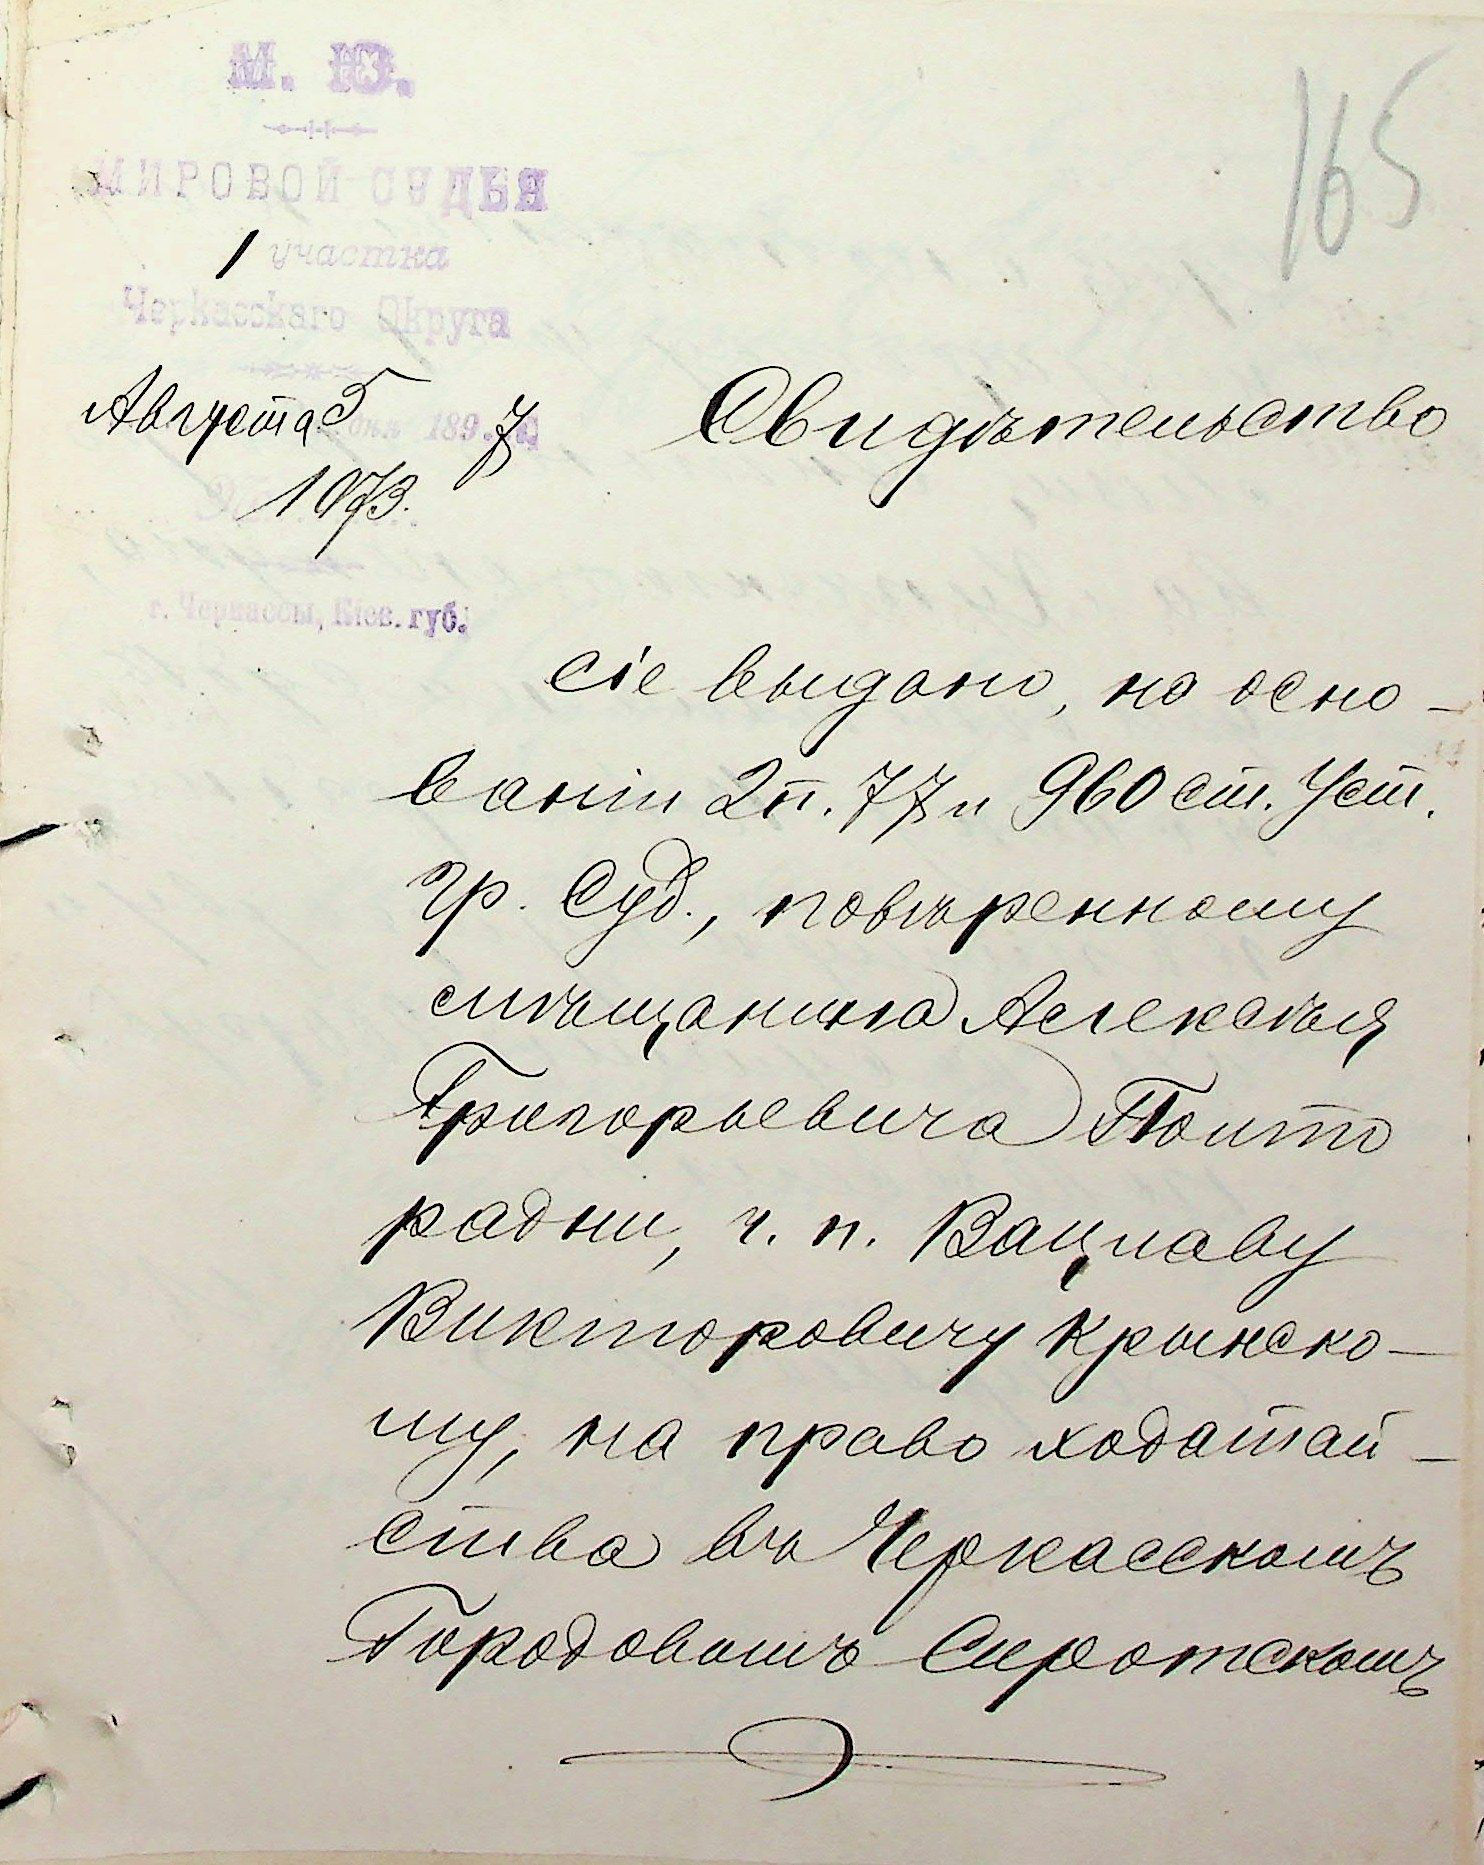 М. Ю.
165
МИРОВОЙ СУДЬЯ
1 участка
Черкасскаго Округа
Августа 5 дня 1897
Свидѣтельство
1073.
г. Черкассы, Кіев. губ.
сіе выдано, на осно-
ваніи 2 п. 77 и 960 ст. Уст.
Гр. Суд., повѣренному
мѣщанина Алексѣя
Григорьевича Полто
радни, ч. п. Вацлаву
Викторовичу Крынско-
му, на право ходатай-
ства въ Черкасскомъ
Городовомъ Сиротскомъ